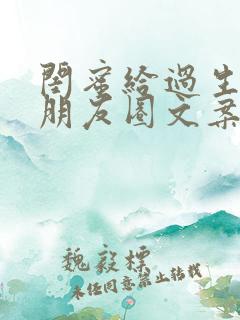 闺蜜给过生
朋友圈文案
魏毅标
未经同意禁止转载